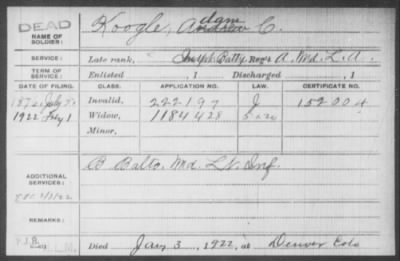 DEAD
NAME OF SOLDIER: Koogle, Adam C.
Andrew
SERVICE: Late rank, Joseph Batty Reg't A. Md. L. A.
TERM OF SERVICE: Enlisted , 1 Discharged , 1
DATE OF FILING. CLASS. APPLICATION NO. LAW. CERTIFICATE NO.
July Invalid, 222197 J 152004
1922 Widow, 1184428
Minor,
ADDITIONAL SERVICES: B Balto. Md. Lt. Inf.
REMARKS:
Died Jan 3, 1922, at Denver Colo